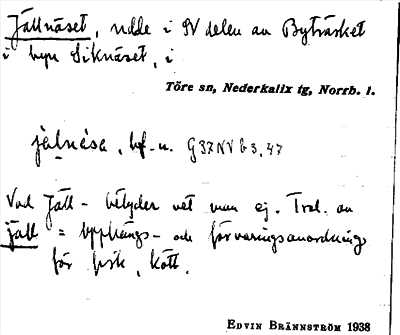 Jällnäset, udde i SV delen av Byträsket
i byn Siknäset, i
Töre sn, Nederkalix tg, Norrb. l.
jälnésa, bf. n. G37NV b3, 47
Vad Jäll- betyder vet man ej. Trol. av
jäll = upphängs- och förvaringsanordning
för fisk, kött.
EDVIN BRÄNNSTRÖM 1938